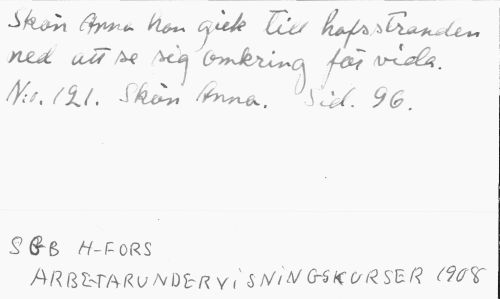 Skön Anna hon gick till hafsstranden
ned att se sig omkring får vida.
N:o. 121. Skön Anna. Sid. 96.
SGB H-FORS
ARBETARUNDERVISNINGSKURSER 1908